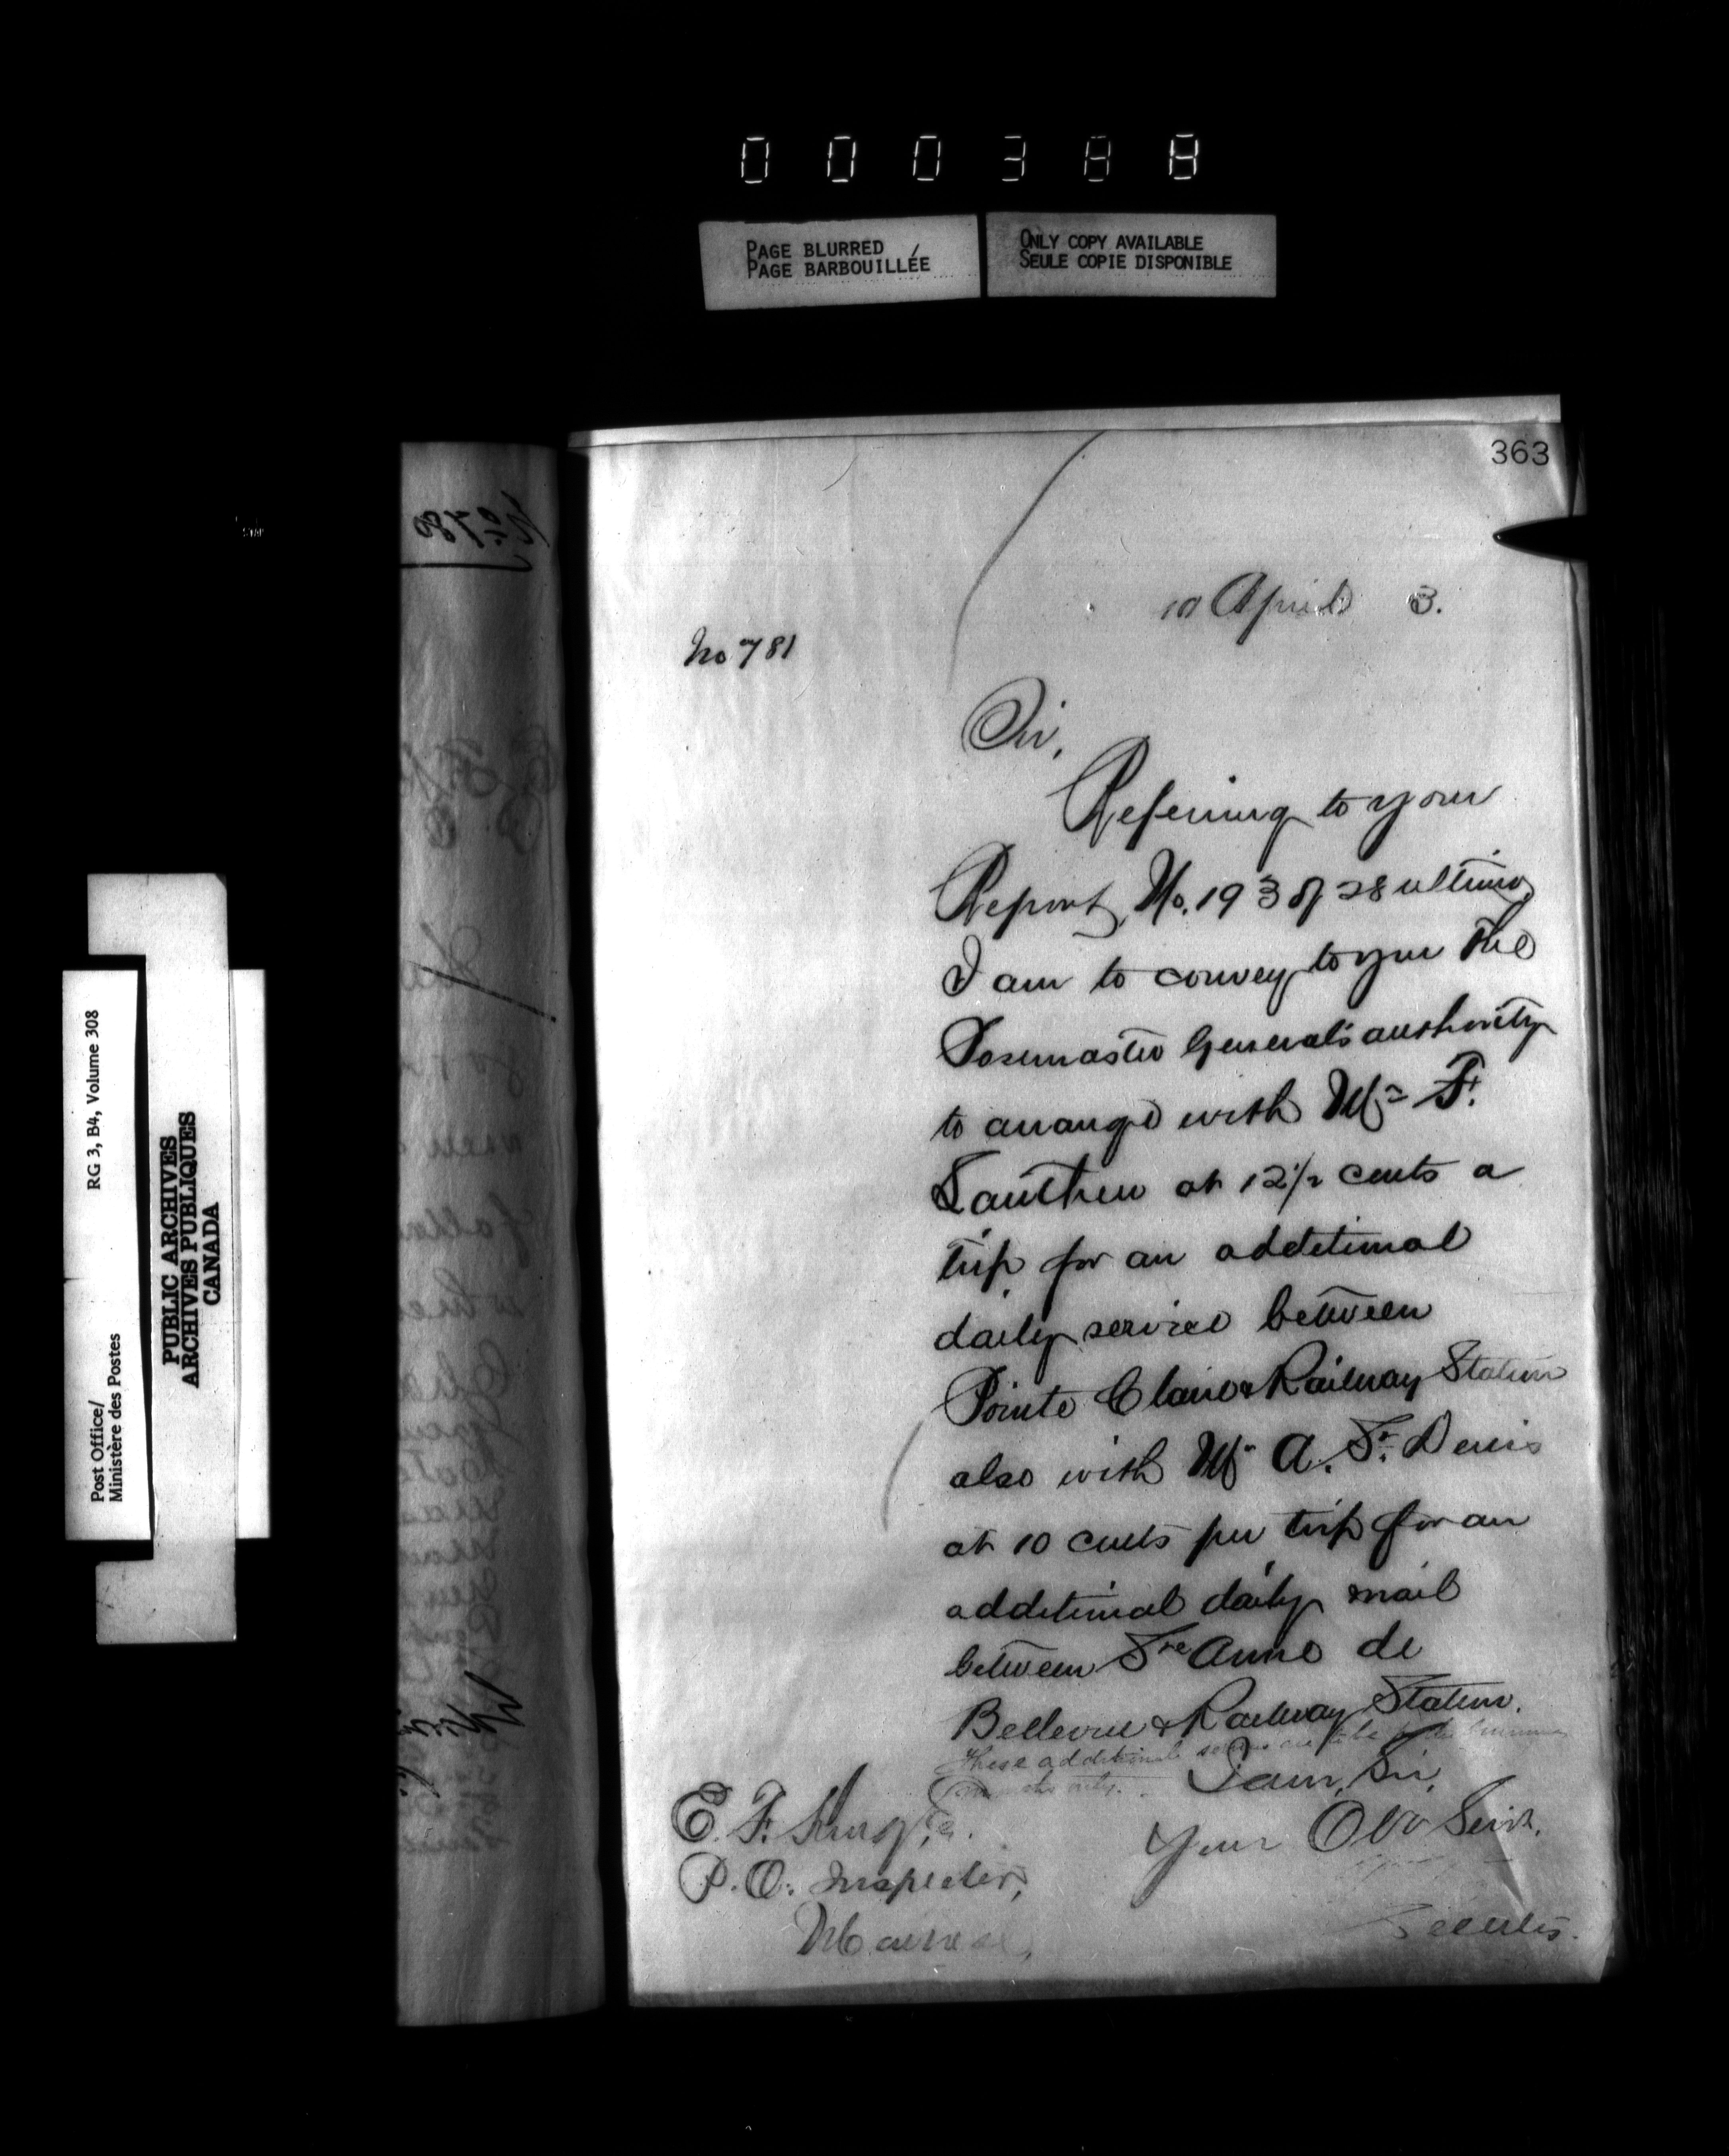 000388
PAGE BLURRED
PAGE BARBOUILLÉE
ONLY COPY AVAILABLE
SEULE COPIE DISPONIBLE
363
10 April 3.
No 781
Sir,
Referring to your
Report No. 193 of 28 ultimo,
I am to convey to you the
Posmaster General's authority
to arrange with Mr F.
at 12 1/2 cents a
trip for an additional
daily service between
Pointe Claire & Railway Station
also with Mr A. St. Denis
at 10 cents per trip for an
additional daily mail
between Ste Anne de
Bellevue & Railway Station.
These additional services are to be for the Summer
months only.
I am, Sir,
Your Obt Servt.
E. F. King, E.
P. O. Inspector,
Montreal,
RG 3, B4, Volume 308
Post Office/
Ministère des Postes
PUBLIC ARCHIVES
ARCHIVES PUBLIQUES
CANADA